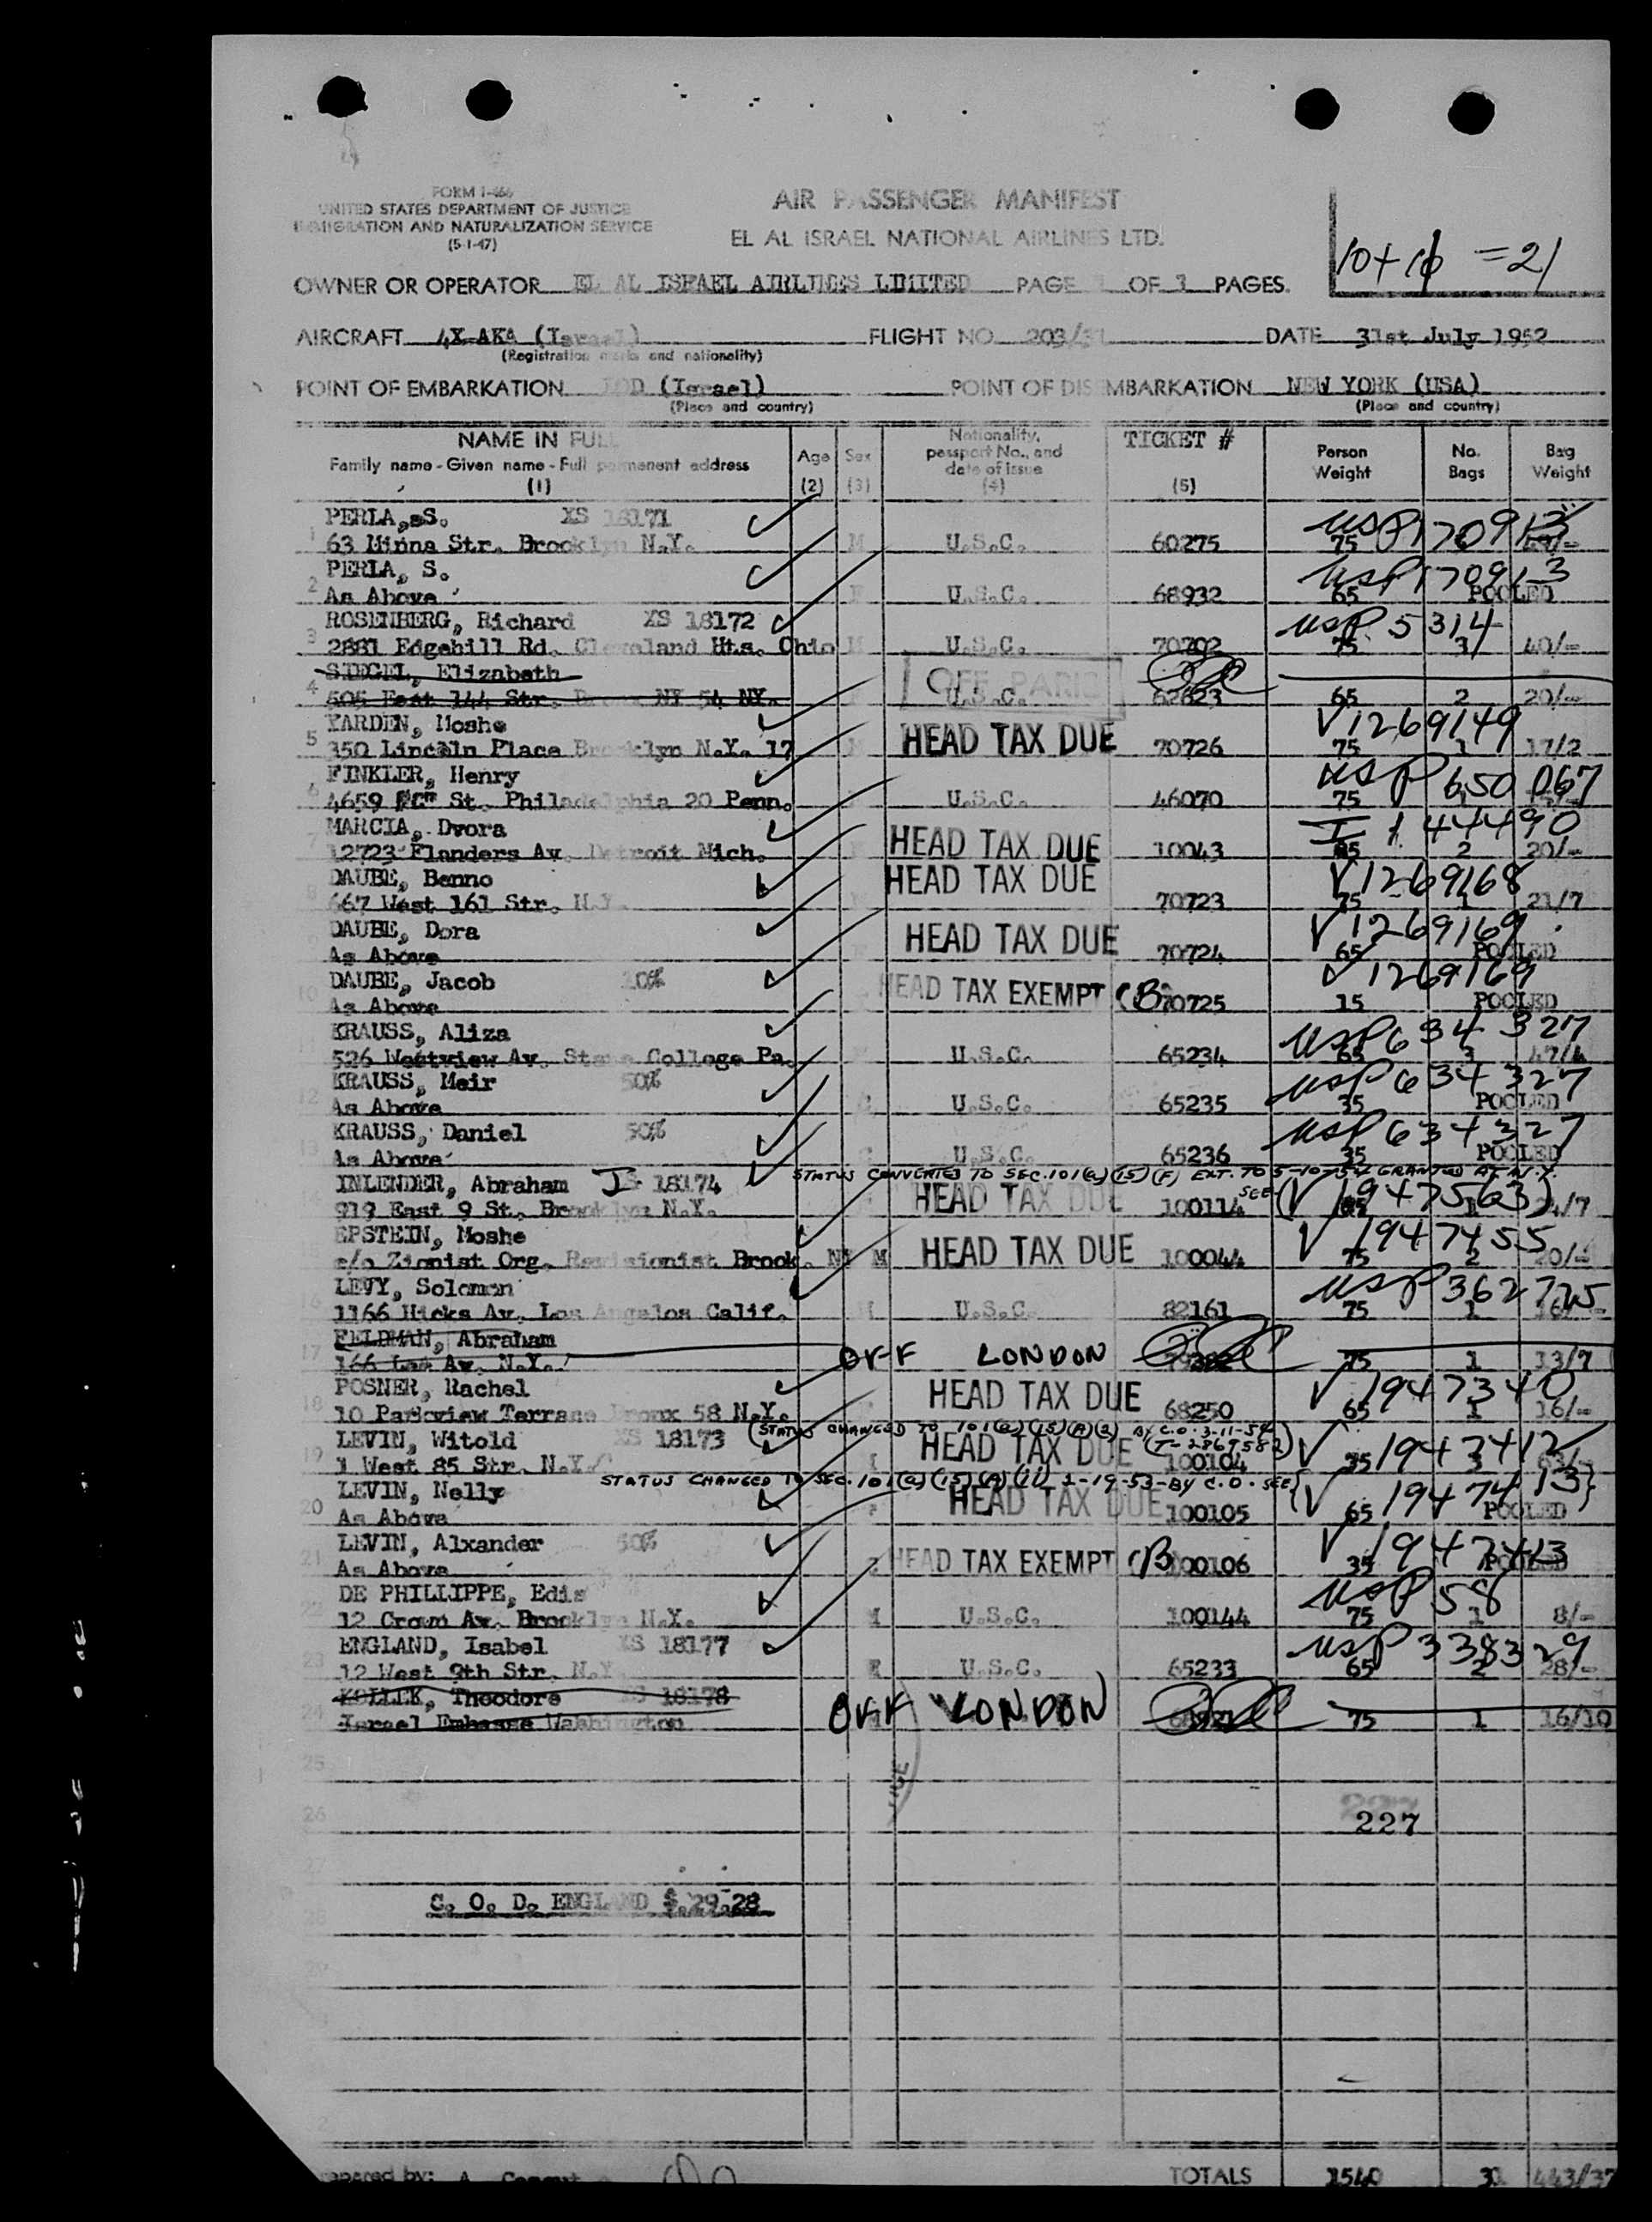 FORM I-466
UNITED STATES DEPARTMENT OF JUSTICE
IMMIGRATION AND NATURALIZATION SERVICE
(5-1-47)
AIR PASSENGER MANIFEST
EL AL ISRAEL NATIONAL AIRLINES LTD.
10+ = 21
OWNER OR OPERATOR EL AL ISRAEL AIRLINES LIMITED PAGE OF PAGES.
AIRCRAFT 4X-AKA (Israel) FLIGHT NO. 203/ DATE 31st July 1952
(Registration marks and nationality)
POINT OF EMBARKATION LOD (Israel) POINT OF DISEMBARKATION NEW YORK (USA)
(Place and country) (Place and country)
NAME IN FULL
Family name - Given name - Full permanent address
(1)
Age
(2)
Sex
(3)
Nationality,
passport No., and
date of issue
(4)
TICKET #
(5)
Person
Weight
No.
Bags
Bag
Weight
PERLA, S. XS 18171 ✓ USP 170913
1 63 Minna Str. Brooklyn N.Y. M U.S.C. 60275 75
PERLA, S. ✓ USP 170913
2 As Above F U.S.C. 68932 65 POOLED
ROSENBERG, Richard XS 18172 ✓ USP 5314
3 2881 Edgehill Rd. Cleveland Hts. Ohio M U.S.C. 70702 75 3 40/-
SIEGEL, Elizabeth OFF PARIS
4 505 East 144 Str. NY 54 NY. U.S.C. 62623 65 2 20/-
YARDEN, Moshe ✓ HEAD TAX DUE V1269149
5 350 Lincoln Place Brooklyn N.Y. 17 M 70726 75 1 17/2
FINKLER, Henry ✓ USP 650 067
6 4659 St. Philadelphia 20 Penn. U.S.C. 46070 75
MARCIA, Dvora ✓ HEAD TAX DUE I 1444490
7 12723 Flanders Av. Detroit Mich. 10043 2 20/-
DAUBE, Benno ✓ HEAD TAX DUE V1269168
8 667 West 161 Str. N.Y. 70723 75 1 21/7
DAUBE, Dora ✓ HEAD TAX DUE V1269169
As Above 70724 65 POOLED
DAUBE, Jacob 10% ✓ HEAD TAX EXEMPT V1269169
10 As Above 70725 15 POOLED
KRAUSS, Aliza ✓ USP 634 327
11 526 Westview Av. State College Pa. U.S.C. 65234 65 3 47/4
KRAUSS, Meir 50% ✓ USP 634 327
12 As Above U.S.C. 65235 35 POOLED
KRAUSS, Daniel 50% ✓ USP 634 327
13 As Above U.S.C. 65236 35 POOLED
STATUS CONVERTED TO SEC.101(a)(15)(F) EXT. TO 5-10-54 GRANTED AT N.Y.
INLENDER, Abraham 18174 ✓ HEAD TAX DUE SEE (V 1947563)
919 East 9 St. Brooklyn N.Y. 100114 1
EPSTEIN, Moshe ✓ HEAD TAX DUE V 1947455
c/o Zionist Org. Revisionist Brook. NY M 100044 75 2 20/-
LEVY, Solomon ✓ USP 362725
16 1166 Hicks Av. Los Angelos Calif. U.S.C. 82161 75 1 16/-
FELDMAN, Abraham
17 166 Av. N.Y. OFF LONDON 75 1 13/7
POSNER, Rachel ✓ HEAD TAX DUE V 1947340
18 10 Parkview Terrase Bronx 58 N.Y. 68250 65 1 16/-
(STATUS CHANGED TO 101(a)(15)(A)(3) BY C.O. 3-11-54
LEVIN, Witold XS 18173 ✓ HEAD TAX DUE (T-2869582) V 1947412
19 1 West 85 Str. N.Y. 100104 3
STATUS CHANGED TO SEC.101(a)(15)(A)(ii) 1-19-53-BY C.O. SEE
LEVIN, Nelly ✓ HEAD TAX DUE V 1947413
20 As Above 100105 65 POOLED
LEVIN, Alxander 50% ✓ HEAD TAX EXEMPT V 1947413
21 As Above 100106 35 POOLED
DE PHILLIPPE, Edis ✓ USP 58
22 12 Crown Av. Brooklyn N.Y. U.S.C. 100144 75 1 8/-
ENGLAND, Isabel XS 18177 ✓ USP 338329
23 12 West 9th Str. N.Y. F U.S.C. 65233 65 2 28/-
KOLLEK, Theodore XS 18178
24 Israel Embasse Washington OFF LONDON 75 1 16/10
25
26
227
27
C. O. D. ENGLAND $ 29.28
28
Prepared by: A. TOTALS 1540 443/37